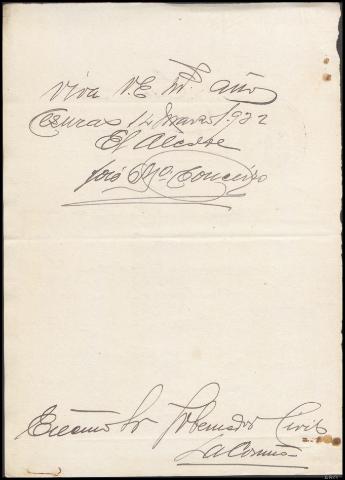 Viva V.E. Ms. años
Cesuras 14 Marzo 1932
El Alcalde
José Mª Conceiro
Excmo Sr Gobernador Civil
La Coruña